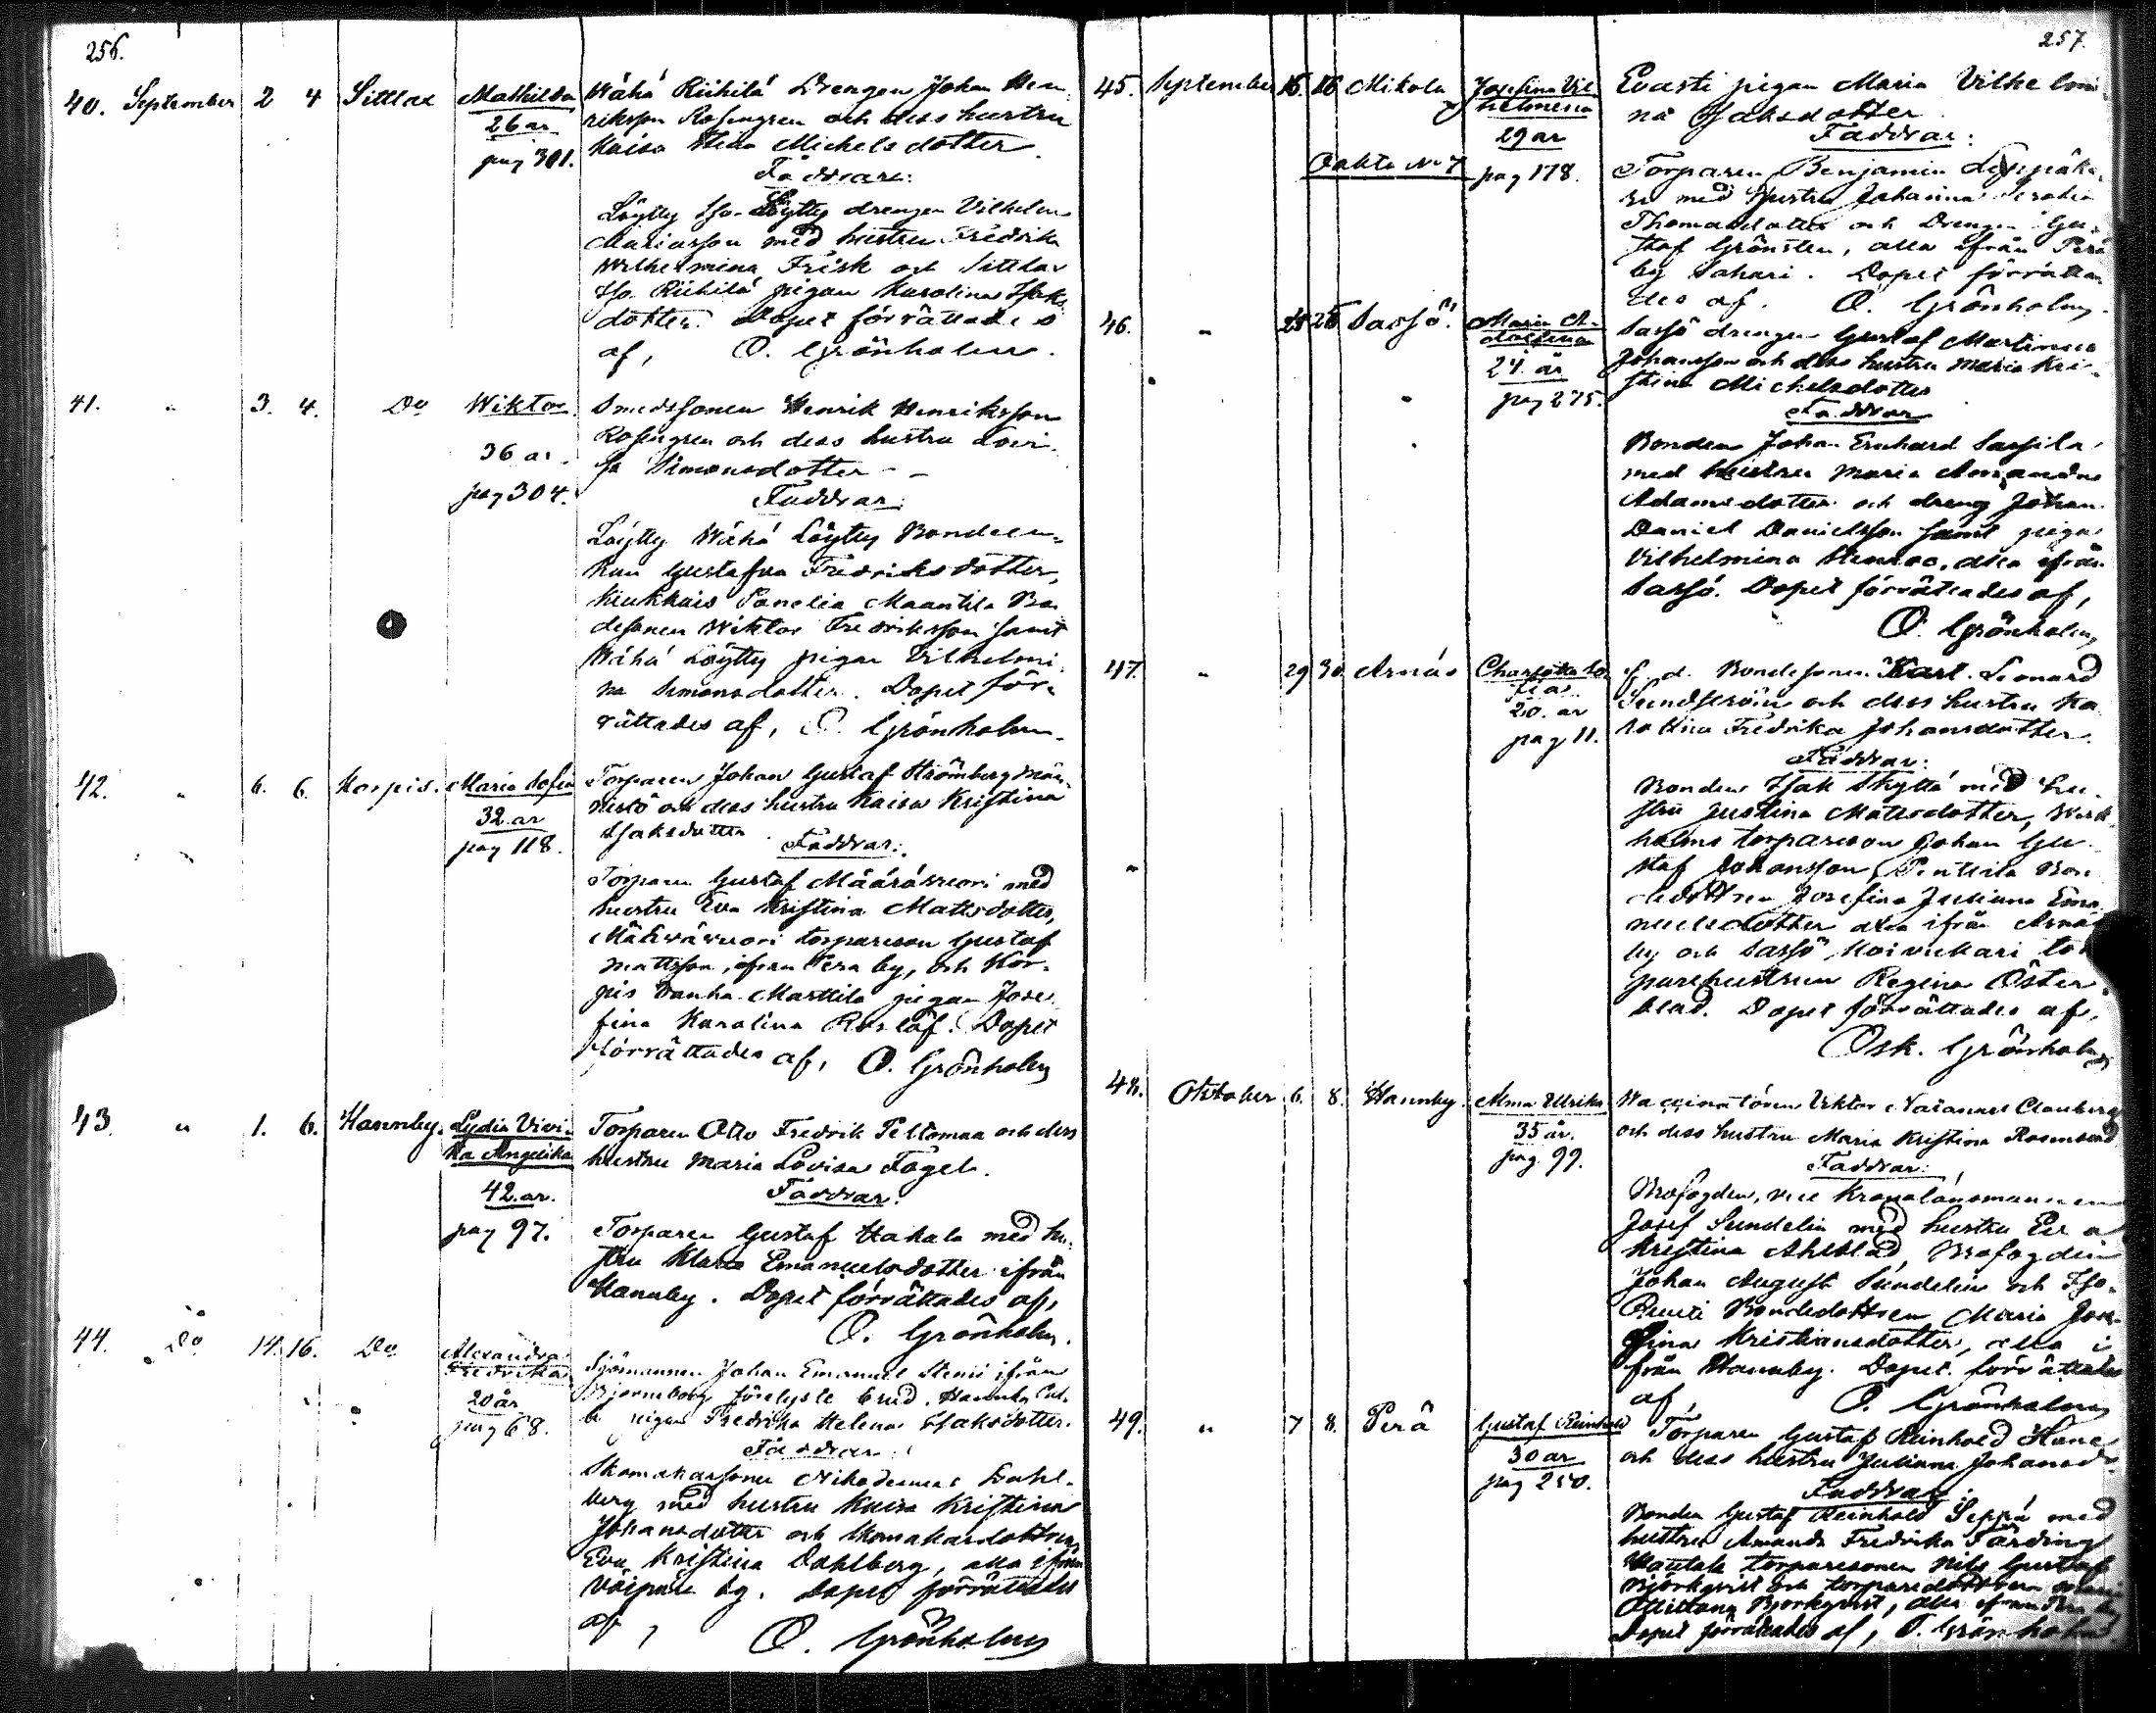 256.
40. September 2 4 Sittlax Mathilda Wähä Riihilä Drengen Johan Hen-
26 år riksson Rosengren och dess hustru
pag 301. Kaisa Stina Michelsdotter.
Faddrar:
Löytty Iso-Löytty drengen Vilhelm
Mariasson med hustru Fredrika
Wilhelmina Frisk och Sittlax
Iso Riihilä pigan Karolina Isaks
dotter. Dopet förrättades
af, O. Grönholm.
41. " 3. 4. Do Wiktor Smedssonen Henrik Henriksson
36 år. Rosengren och dess hustru Lovi-
sa Simonsdotter
pag 304. Faddrar:
Löytty Wähä Löytty Bondeen-
kan Gustafva Fredriksdotter,
Kiukkais Panelia Maantila Bon
desonen Wiktor Fredriksson samt
Wähä Löytty pigan Vilhelmi-
na Simonsdotter. Dopet för-
rättades af, O. Grönholm.
42. " 6. 6. Korpis. Maria Sofia Torparen Johan Gustaf Strömberg Män-
32 år nistö och dess hustru Kaisa Kristina
pag 118. Isaksdotter Faddrar:
Torparen Gustaf Määrävuori med
hustru Eva Kristina Mattsdotter,
torpareson Gustaf
Mattsson, ifrån Perä by, och Kor-
pis Wanha-Marttila pigan Jose-
fina Karolina Roslöf. Dopet
förrättades af, O. Grönholm
43. " 1. 6. Hannby. Lydia Vivi- Torparen Otto Fredrik Peltomaa och dess
ka Angelika hustru Maria Lovisa Fogel.
42 år. Faddrar:
pag 97. Torparen Gustaf Hakala med hu-
stru Maria Emanuelsdotter ifrån
Hannby. Dopet förrättades af,
O. Grönholm.
44. Do 14. 16. Do Alexandra
Fredrika Sjömannen Johan Emanuel Stenii ifrån
20 år Björneborg förelyste brud. Hannby
pag 68. pigan Fredrika Helena Isaksdotter.
Faddrar:
Skomakarsonen Nikodemus Dahl-
berg med hustru Kaisa Kristina
Johansdotter och skomakardottren
Eva Kristina Dahlberg, alla ifrån
by. Dopet förrättades
af, O. Grönholm
257.
45. September 15. 16 Mikola Josefina Vil Evasti pigan Maria Vilhelmi-
helmina na Isaksdotter
29 år Faddrar:
Oäkta No 7 pag 178. Torparen Benjamin Leppäka-
ri med hustru Johanna Serafia
Thomasdotter och Drengen Gu-
staf Grönsten, alla ifrån Perä
by Sahari. Dopet förrätta-
des af. O. Grönholm.
46. " 25 26 Sassjö. Maria A- Sassjö drengen Gustaf Martinus
24 år Johansson och dess hustru Maria Kri-
pag 275. stina Michelsdotter
Faddrar
Bonden Johan Ernhard Sassila
med hustru Maria Amanda
Adamsdotter och dreng Johan
Daniel Danielsson samt pigan
Vilhelmina alla ifrån
Sassjö. Dopet förrättades af,
O. Grönholm
47. " 29 30. Arnäs Charlotta So- f. d. Bondesonen Karl Leonard
fia Sundström och dess hustru Ka
20. år rolina Fredrika Johansdotter.
pag 11. Faddrar:
Bonden Isak Skyttä med hu-
stru Justina Mattsdotter,
holms torpareson Johan Gu-
staf Johansson, Penttilä Bon
dedottren Josefina Juliana Ema
nuelsdotter alla ifrån Arnäs
by och Sassjö Koivukari tor
parehustrun Regina Öster
blad. Dopet förrättades af,
Osk. Grönholm
48. Oktober 6. 8. Hannby. Alma Ulrika Vaccinatören Viktor Clauberg
35 år. och dess hustru Maria Kristina
pag. 99. Faddrar:
Brofogden, vice Kronolänsmannen
Josef Sundelin med hustru Eva
Kristina Ahlblad, Brofogden
Johan August Sundelin och Iso-
Bondedottren Maria Jose-
fina Kristiansdotter, alla i
från Hannby. Dopet förrättades
af O. Grönholm
49. " 7 8. Perä Gustaf Reinhold Torparen Gustaf Reinhold
30 år och dess hustru Juliana Johansd.
pag 250. Faddrar:
Bonden Gustaf Reinhold Seppä med
hustru Amanda Fredrika Färding
torparesonen Nils Gustaf
Björkqvist och torparedottren
Björkqvist, alla ifrån Perä by
Dopet förrättades af, O. Grönholm.